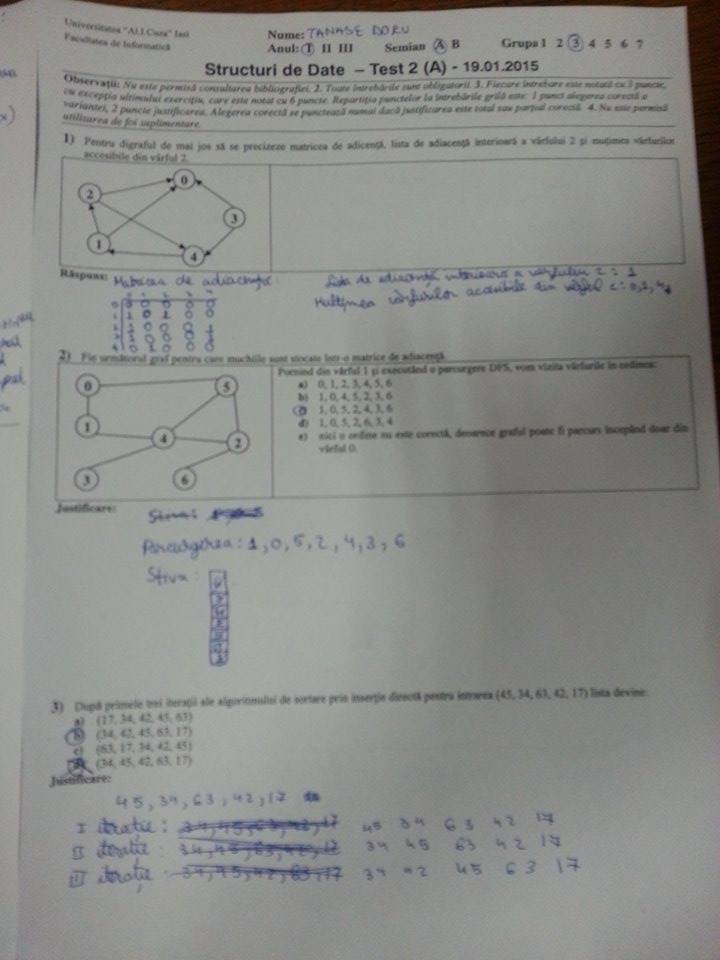 Universitatea "Al.I.Cuza" Iasi
Facultatea de Informatică
Nume: TANASE DORU
Anul: I II III Semian A B Grupa 1 2 3 4 5 6 7
Structuri de Date – Test 2 (A) - 19.01.2015
Observații: Nu este permisă consultarea bibliografiei. 2. Toate întrebările sunt obligatorii. 3. Fiecare întrebare este notată cu 3 puncte,
cu excepția ultimului exercițiu, care este notat cu 6 puncte. Repartiția punctelor la întrebările grilă este: 1 punct alegerea corectă a
variantei, 2 puncte justificarea. Alegerea corectă se punctează numai dacă justificarea este total sau parțial corectă. 4. Nu este permisă
utilizarea de foi suplimentare.
1) Pentru digraful de mai jos să se precizeze matricea de adicență, lista de adiacență interioară a vârfului 2 și mulțimea vârfurilor
accesibile din vârful 2.
0
2
3
1
4
Răspuns: Matricea de adiacență:
Lista de adiacență interioară a vârfului 2: 1
Mulțimea vârfurilor accesibile din vârful 2: 0,1,4
2) Fie următorul graf pentru care muchiile sunt stocate într-o matrice de adiacență.
0 5
1 4 2
3 6
Pornind din vârful 1 și executând o parcurgere DFS, vom vizita vârfurile în ordinea:
a) 0, 1, 2, 3, 4, 5, 6
b) 1, 0, 4, 5, 2, 3, 6
1, 0, 5, 2, 4, 3, 6
d) 1, 0, 5, 2, 6, 3, 4
e) nici o ordine nu este corectă, deoarece graful poate fi parcurs începând doar din
vârful 0.
Justificare:
Parcurgerea: 1, 0, 5, 2, 4, 3, 6
Stiva:
3) După primele trei iterații ale algoritmului de sortare prin inserție directă pentru intrarea (45, 34, 63, 42, 17) lista devine:
a) (17, 34, 42, 45, 63)
b) (34, 42, 45, 63, 17)
c) (63, 17, 34, 42, 45)
d) (34, 45, 42, 63, 17)
Justificare:
45, 34, 63, 42, 17
I iterație: 34, 45, 63, 42, 17 45 34 63 42 17
II iterație: 34, 45, 63, 42, 17 34 45 63 42 17
III iterație: 34, 45, 42, 63, 17 34 42 45 63 17